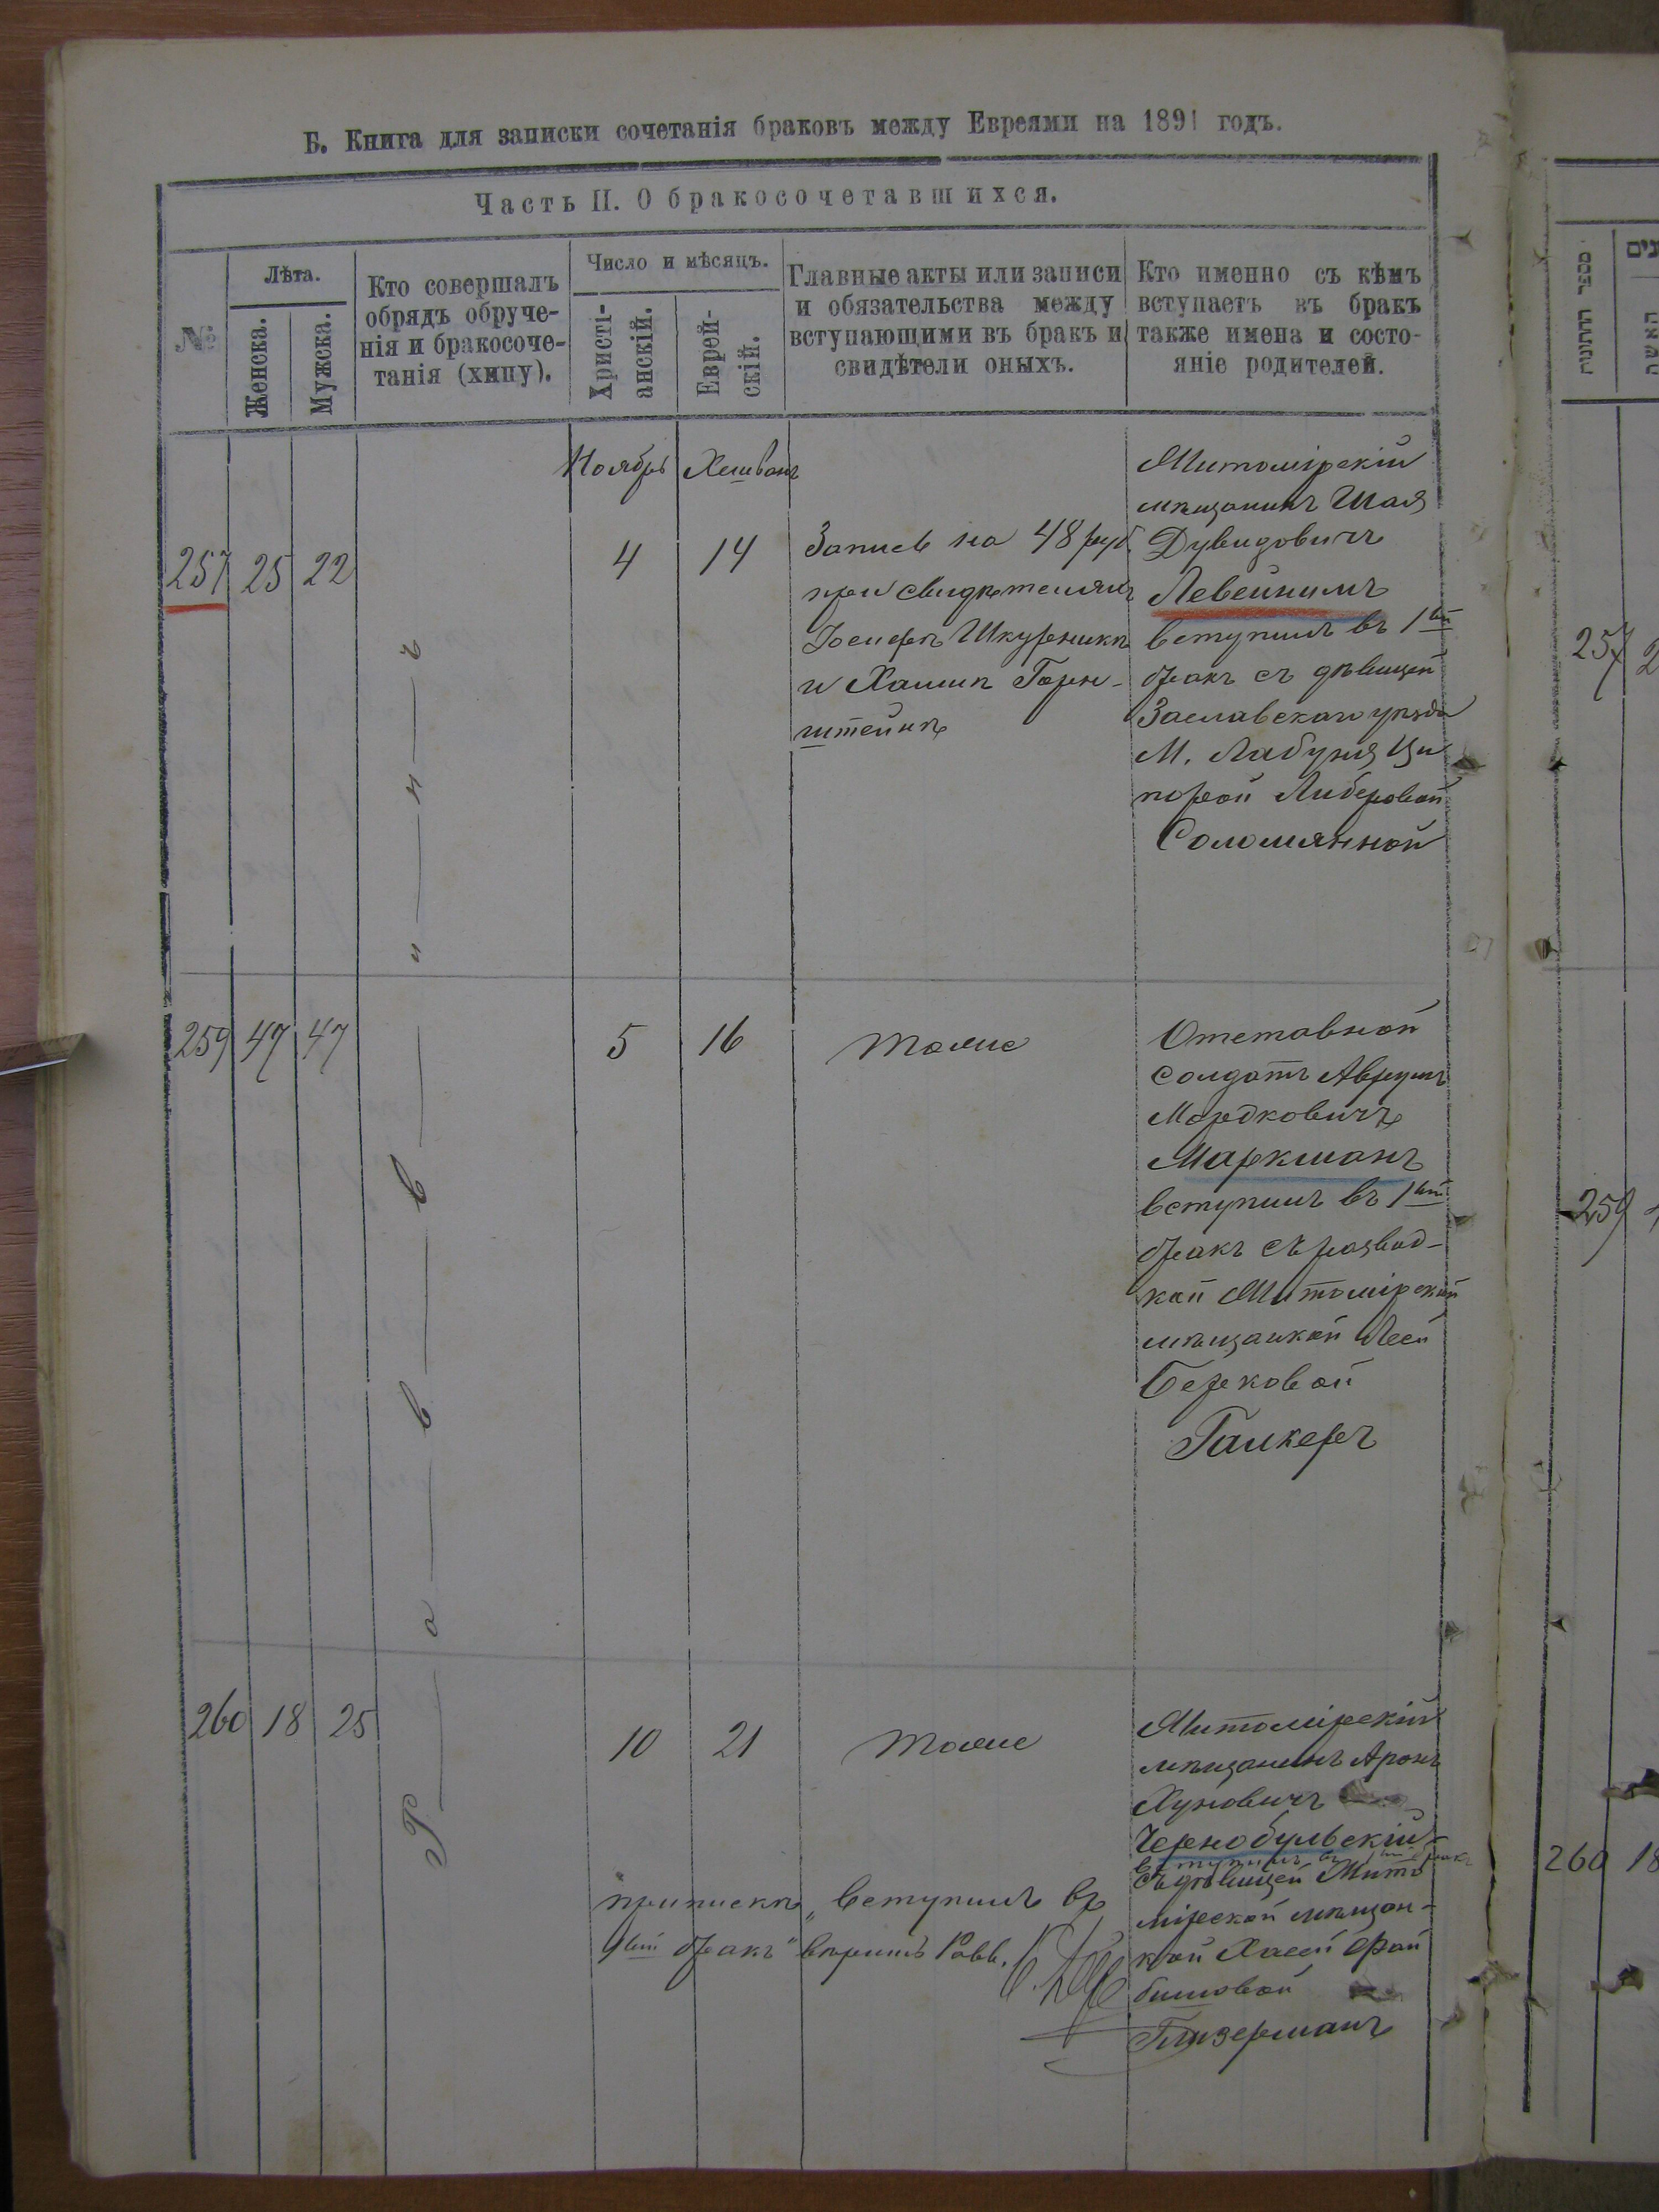 Б. Книга для записки сочетанія браковъ между Евреями на 1891 годъ.
Часть II. О бракосочетавшихся.
№
Лѣта.
Женска.
Мужска.
Кто совершалъ
обрядъ обруче-
нія и бракосоче-
танія (хипу).
Число и мѣсяцъ.
Христі-
анскій.
Еврей-
скій.
Главные акты или записи
и обязательства между
вступающими въ бракъ и
свидѣтели оныхъ.
Кто именно съ кѣмъ
вступаетъ въ бракъ
также имена и состо-
яніе родителей.
Ноябрь Хешванъ
257 25 22
4 14
Запись на 48 руб.
при свидѣтеляхъ
Іосифѣ Шкурникѣ
и Хаимѣ Горн-
штейнѣ
Житомірскій
мѣщанинъ Шая
Дувидовичъ
Левейнимъ
вступилъ въ 1ый
бракъ съ дѣвицей
Заславскаго уѣзда
М. Лабуня Ци
порой Либеровой
Соломянной
259 47 47
5 16
Тоже
Отставной
солдатъ Аврумъ
Мордковичъ
Маркманъ
вступилъ въ 1ый
бракъ съ развод-
кой Житомірской
мѣщанкой Лея
Берковой
Галкеръ
260 18 25
10 21
Тоже
Житомірскій
мѣщанинъ Аронъ
Хуновичъ
Чернобульскій
вступилъ въ 1ый бракъ
съ дѣвицей Жито
мірской мѣщан-
кой Хаей Фай
бишовой
Глизерманъ
Р а в в и н ъ
припискѣ „вступилъ въ
1ый бракъ" вѣримъ Равв.
מספר החתונות
257 2
259
260 18